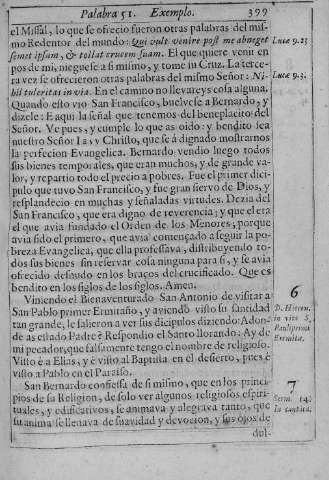 Palabra 51. Exemplo. 399
el Missal, lo que se ofreciò fueron otras palabras del mis-
mo Redentor del mundo: Qui vult venire post me abneget
semet ipsum, & tollat crucem suam. El que quiere venir en
pos de mi, nieguese a si mismo, y tome su Cruz. La terce-
ra vez se ofrecieron otras palabras del mismo Señor: Ni-
hil tuleritis in via. En el camino no llevareys cosa alguna.
Quando esto vio San Francisco, buelvese a Bernardo, y
dizele: Eaqui la señal que tenemos del beneplacito del
Señor. Ve pues, y cumple lo que as oido: y bendito sea
nuestro Señor Christo, que se à dignado mostrarnos
la perfecion Evangelica. Bernardo vendio luego todos
sus bienes temporales, que eran muchos, y de grande va-
lor, y repartio todo el precio a pobres. Fue el primer dici-
pulo que tuvo San Francisco, y fue gran siervo de Dios, y
resplandecio en muchas y señaladas virtudes. Dezia del
San Francisco, que era digno de reverencia; y que el era
el que avia fundado el Orden de los Menores, porque
avia sido el primero, que avia començado a seguir la po-
breza Evangelica, que ella professava, distribuyendo to-
dos sus bienes sin reservar cosa ninguna para si, y se avia
ofrecido desnudo en los braços del crucificado. Que es
bendito en los siglos de los siglos. Amen.
Viniendo el Bienaventurado San Antonio de visitar a
San Pablo primer Ermitaño, y aviendo visto su santidad
tan grande, le salieron a ver sus dicipulos diziendo: Adon-
de as estado Padre? Respondio el Santo llorando: Ay de
mi pecador, que falsamente tengo el nombre de religioso.
Visto è a Elias, y è visto al Baptista en el desierto, pues è
visto a Pablo en el Paraiso.
San Bernardo confiessa de si mismo, que en los princi-
pios de su Religion, de solo ver algunos religiosos espiri-
tuales, y edificativos, se animava y alegrava tanto, que
su anima se llenava de suavidad y devocion, y sus ojos de
dul-
Lucæ 9.23
Lucæ 9.3.
6
D. Hieron.
in vita S.
Pauli primi
Eremitæ.
7
Serm. 14.
in cantica.